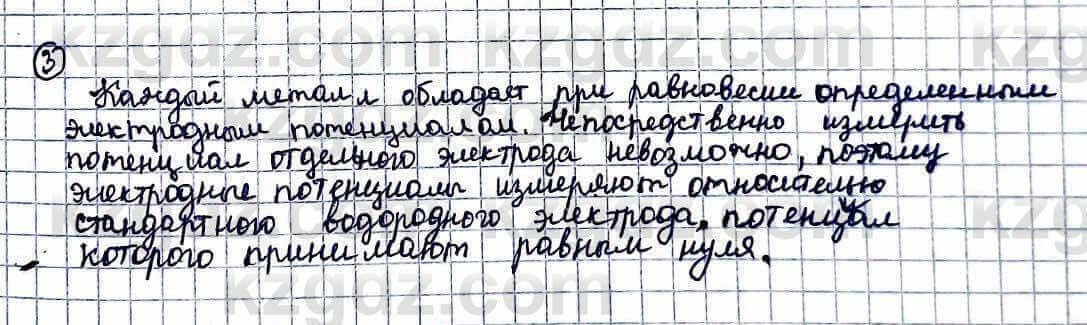 3
Каждый металл обладает при равновесии определенным
электродным потенциалом. Непосредственно измерить
потенциал отдельного электрода невозможно, поэтому
электродные потенциалы измеряют относительно
стандартного водородного электрода, потенциал
которого принимают равным нуля.
kzgdz.com